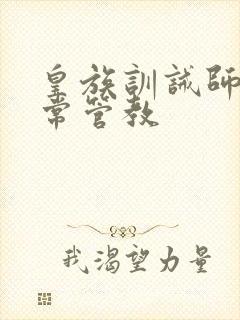 皇族訓誡師
常管教
我渴望力量